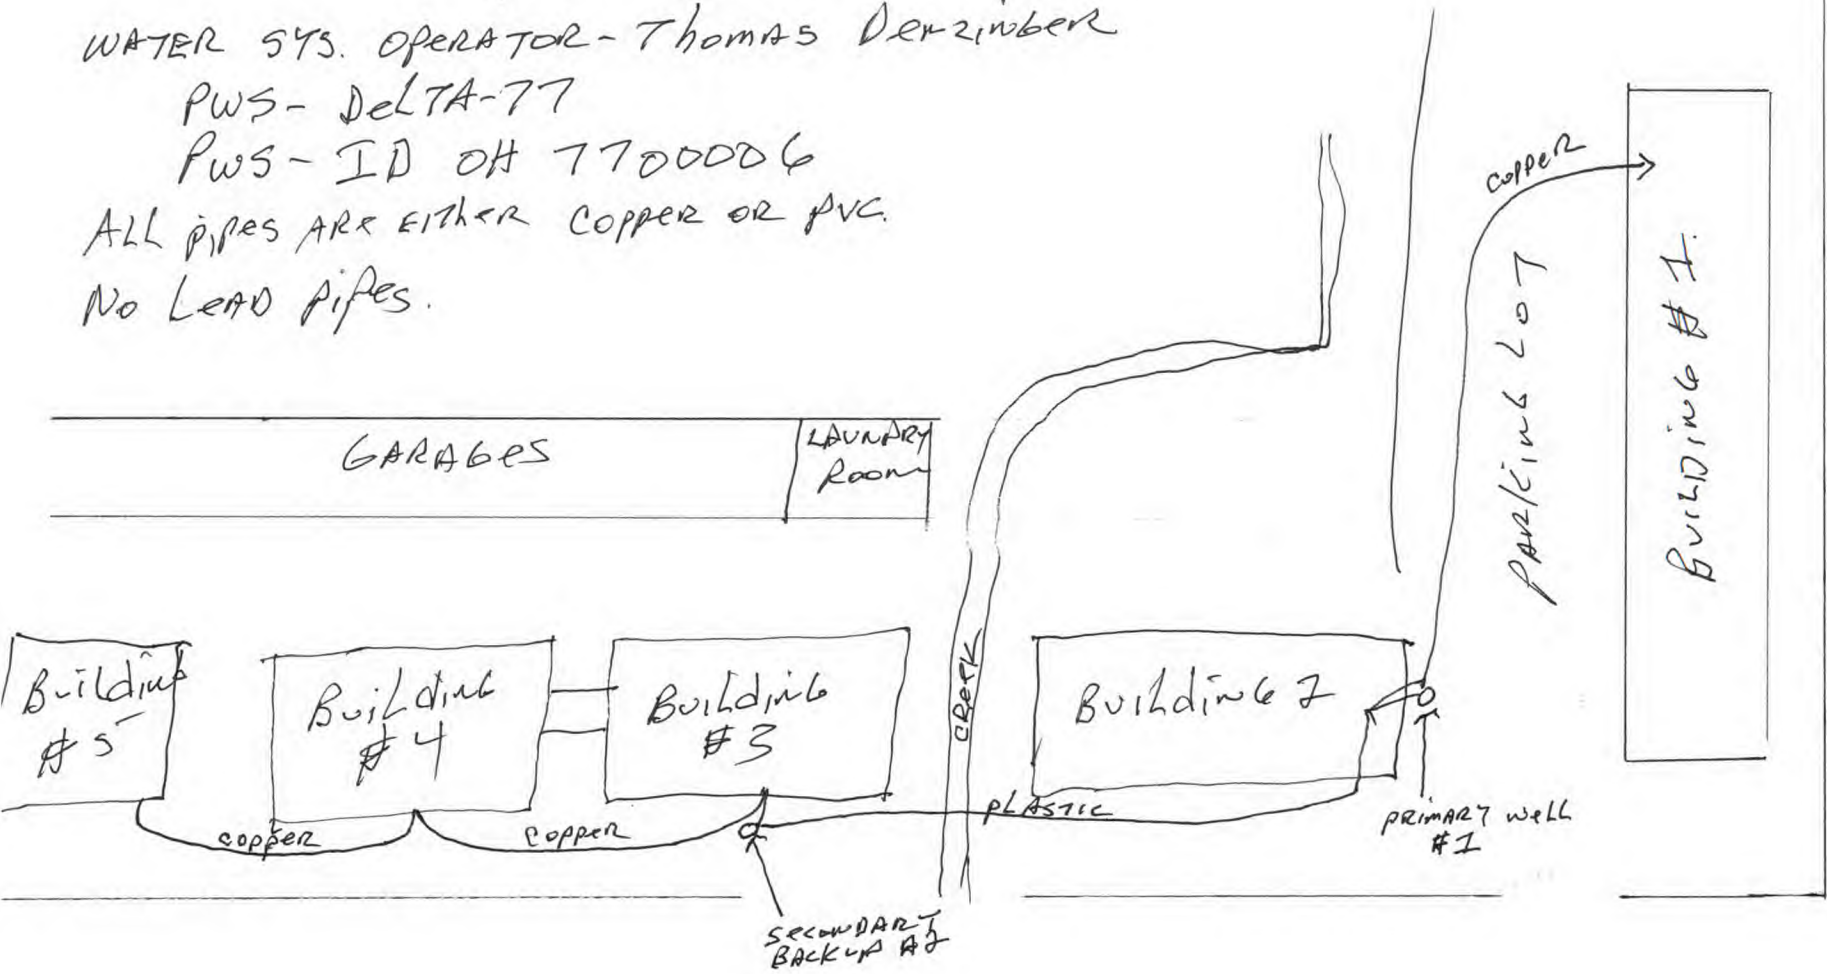 WATER SYS. OPERATOR - Thomas Derzinger
PWS - DELTA-77
PWS - ID OH 7700006
ALL pipes ARE EITHER COPPER OR PVC.
No LEAD pipes.
COPPER
PARKING LOT
BUILDING # 1.
GARAGES
LAUNDRY
Room
Building
# 5
Building
# 4
Building
# 3
CREEK
BuildinG 2
COPPER
COPPER
PLASTIC
PRIMARY WELL
#1
SECONDARY
BACKUP #2